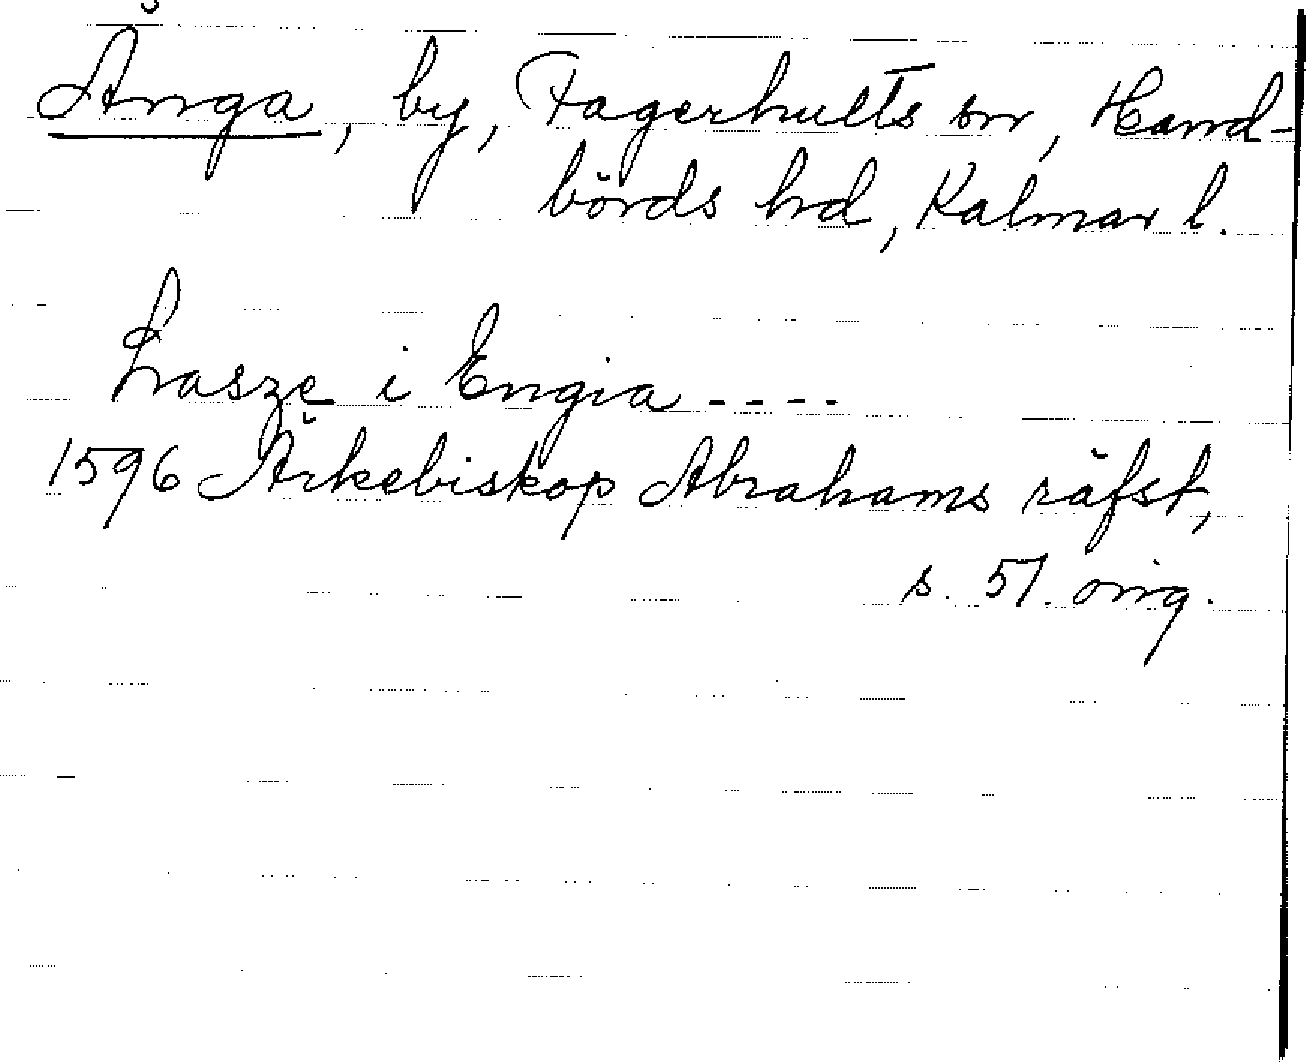 Änga, by, Fagerhults sn, Hand-
börds hd, Kalmar l.
Lasze i Engia ----
1596 Ärkebiskop Abrahams räfst,
s. 51. orig.